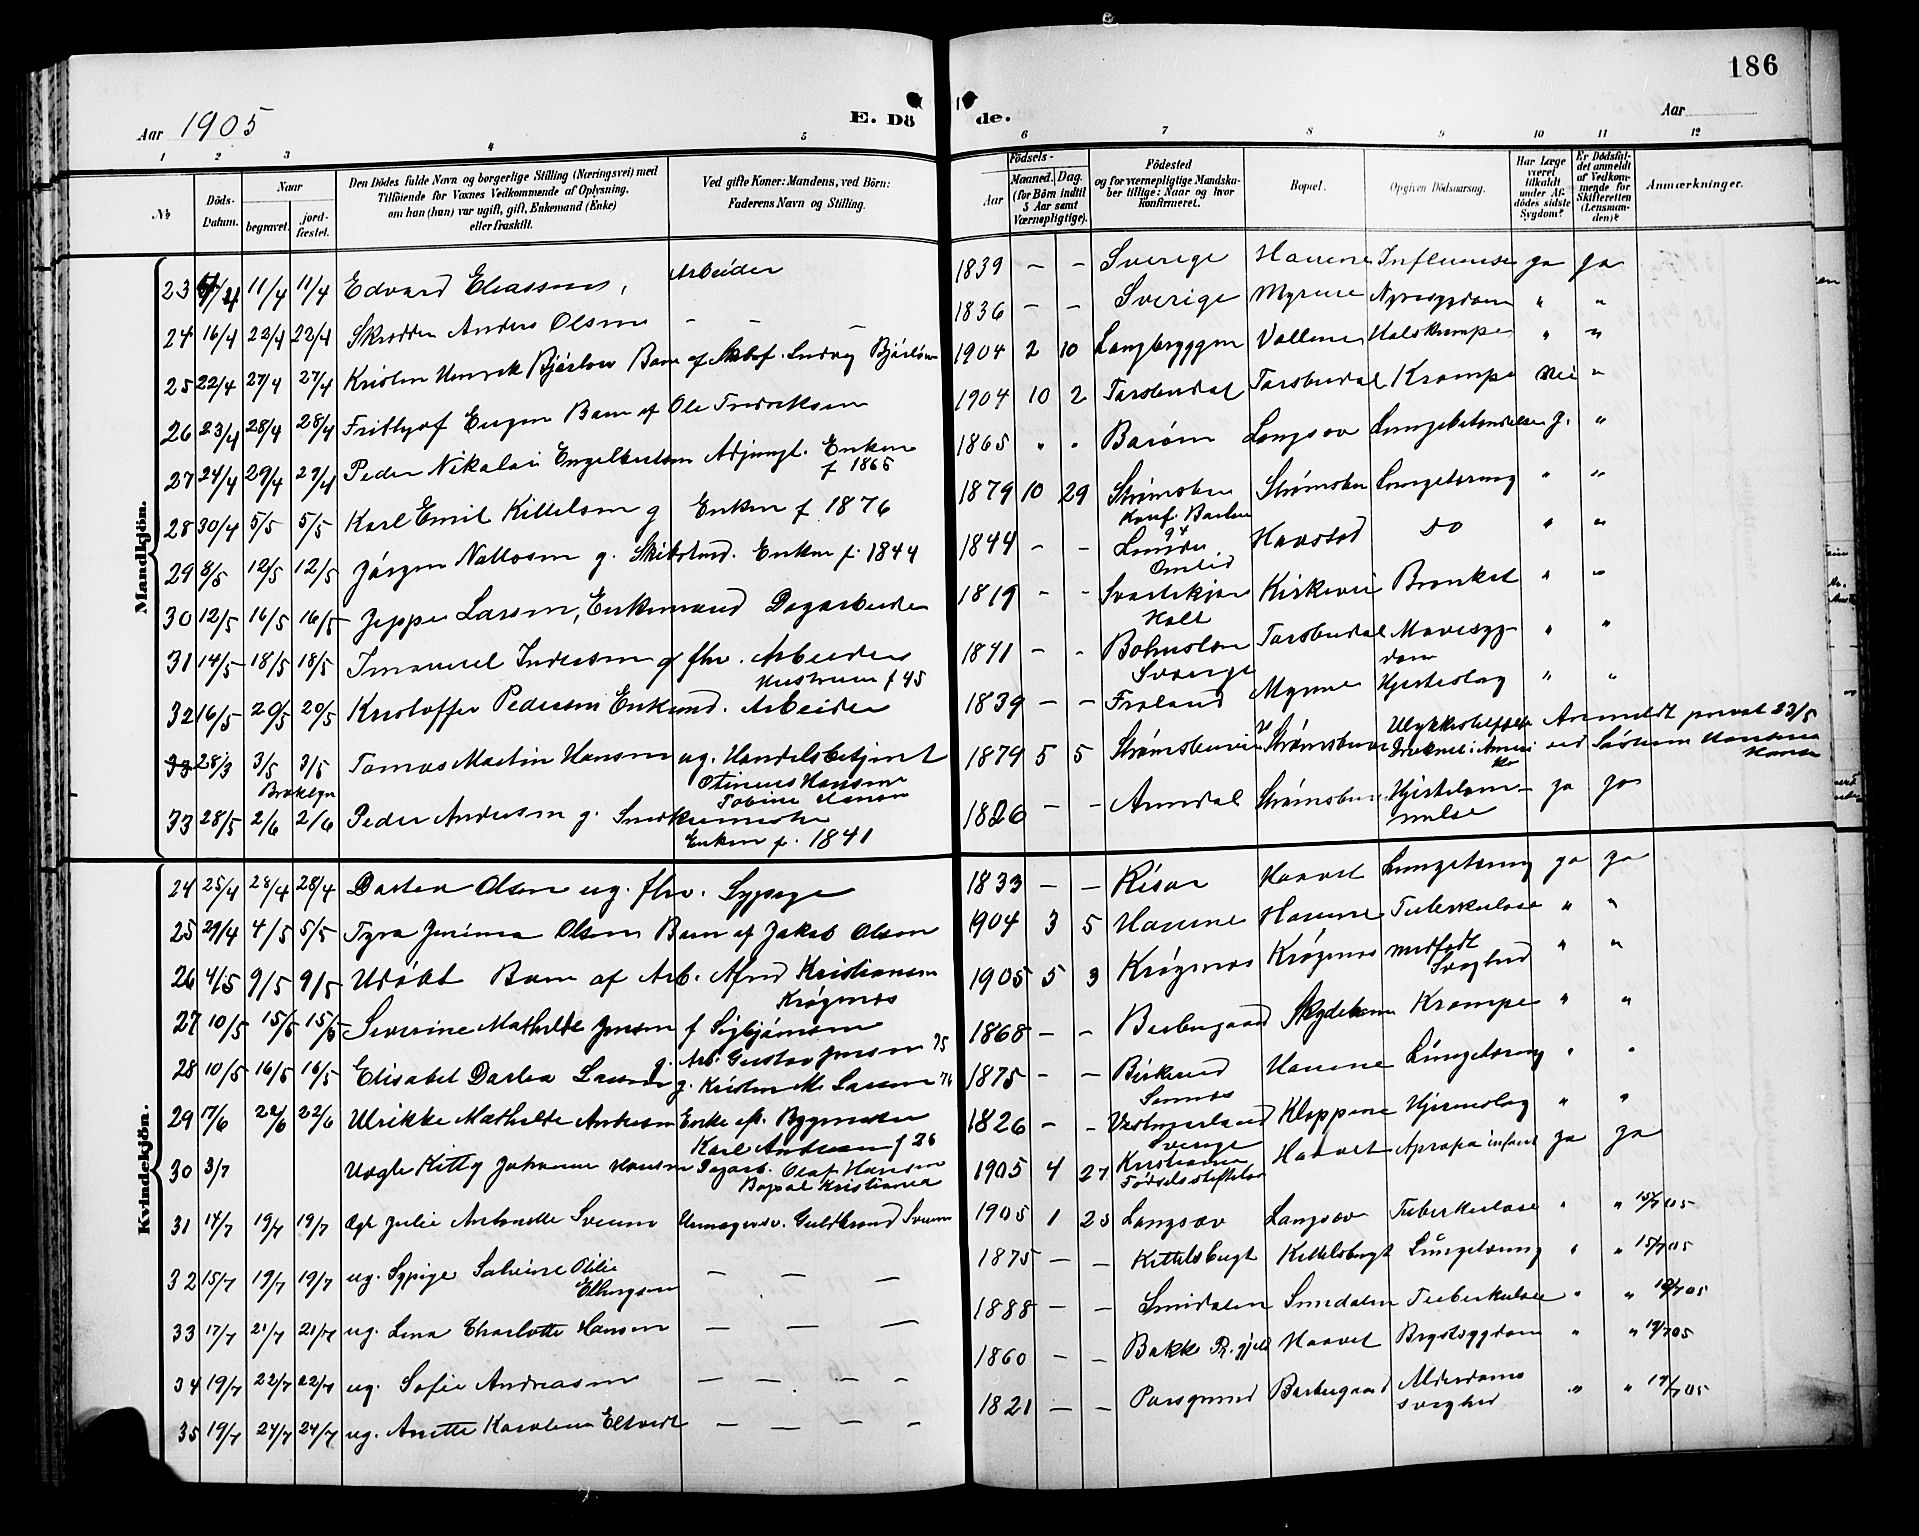 186
Aar 1905
E. Dö de.
Aar
1 2 3 4 5 6 7 8 9 10 11 12
№
Döds-Datum.
Naar
begravet.
jordfæstet.
Den Dödes fulde Navn og borgerlige Stilling (Næringsvei) med
Tilföiende for Voxnes Vedkommende af Oplysning,
om han (hun) var ugift, gift, Enkemand (Enke)
eller fraskilt.
Ved gifte Koner: Mandens, ved Börn:
Faderens Navn og Stilling.
Födsels-
Aar
Maaned. Dag.
(for Börn indtil
5 Aar samt
Værnepligtige).
Födested
og for værnepligtige Mandskaber
tillige: Naar og hvor
konfirmeret.
Bopæl.
Opgiven Dödsaarsag.
Har Læge
været
tilkaldt
under Af-
dödes sidste
Sygdom?
Er Dödsfal-
det anmeldt
af Vedkom-
mende for
Skifteretten
(Lensman-
den)?
Anmærkninger.
Mandkjön.
23 11/4 11/4 Edvard Eliassen, Arbeider 1839 – – Sverige Havene Influense ja ja
24 16/4 22/4 22/4 Skrædder Anders Olsen – – – 1836 – – Sverige Myrene Nyresygdom " "
25 22/4 27/4 27/4 Kristen Henrik Bjørlow Barn af Skbsf. Ludvig Bjørlow 1904 2 10 Langbryggen Vollene Halskrampe " "
26 23/4 28/4 28/4 Frithjof Eugen Barn af Ole Fredriksen 1904 10 2 Torsbudal Torsbudal Krampe Nei "
27 24/4 29/4 29/4 Peder Nikolai Engelbertsen Adjungt. Enken f 1865 1865 " " Barøen Langsæv Lungebetændelse J. "
28 30/4 5/5 5/5 Karl Emil Kittelsen g Enken f 1876 1879 10 29 Strømsbu Konf. Barbu 94 Strømsbu Lungetæring " "
29 8/5 12/5 12/5 Jørgen g. Skibstmd. Enken f. 1844 1844 – – Havstad do " "
30 12/5 16/5 16/5 Jeppe Larsen, Enkemand Dagarbeider 1819 – – Holt Kirkevei Bronket " "
31 14/5 18/5 18/5 Imanuel g fhv. Arbeider Hustruen f 45 1841 – – Bohuslen Sverige Torsbudal Mavesygdom " "
32 16/5 20/5 20/5 Kristoffer Pedersen Enkemd. Arbeider 1839 – – Froland Myrene Hjerteslag " "
33 28/3 3/5 3/5 Tomas Martin Hansen ug. Handelsbetjent Hansen Tobine Hansen 1874 5 5 Strømsbuvei Strømsbuvei Ulykkestilfælde Druknet i Amerika Anmeldt privat 23/5 ved Hansen
33 28/5 2/6 2/6 Peder Andersen g. Enken f. 1841 1826 – – Arendal Strømsbu Hjertelammelse ja ja
Kvindekjön.
24 25/4 28/4 28/4 Dortea Olsen ug. fhv. Sypige 1833 – – Risør Haavet Lungetæring ja ja
25 29/4 4/5 5/5 Tyra Jenima Olsen Barn af Jakob Olsen 1904 3 5 Havene Havene Tuberkulose " "
26 4/5 9/5 9/5 Udøbt Barn af Arb. Alfred Kristiansen Krøgenæs 1905 5 3 Krøgenæs Krøgenæs medfødt Svaghed " "
27 10/5 15/5 15/5 Severine Mathilde Jensen f Sigbjørnsen g. Arb. Gustav Jensen 75 1868 – – Barbugaard Skydebanen Krampe " "
28 10/5 16/5 16/5 Elisabet Dortea Larsen g. Kristen M. Larsen 74 1875 – – Birkerød Havene Lungetæring " "
29 17/6 22/6 22/6 Ulrikke Mathilde Andersen Enke eft. Bygmester Karl Andersen f 26 1826 – – Vestmanland Sverige Kloppene Hjerneslag " "
30 3/7 Uægte Kitty Johanne Hansen Dagarb. Olaf Hansen Bopæl Kristiania 1905 4 27 Kristiania Fødselsstiftelse Haavet ja ja
31 14/7 19/7 19/7 Ægt Julie Antonette Svensen Urmagersv. Guldbrand Svensen 1905 1 23 Langsæv Langsæv Tuberkulose " " 15/7 05
32 15/7 19/7 19/7 ug. Sypige Salvine Otilie Ellingsen – – – 1875 – – Kittelsbugt Kittelsbugt Lungetæring " " 15/7 05
33 17/7 21/7 21/7 ug. Lina Charlotte Hansen – – – 1888 – – Smidalen Smidalen Tuberkulose " " 18/7 05
34 19/7 22/7 22/7 ug. Sofie Andreasen – – – – 1860 – – Bakke Haavet Brystsygdom " " 19/7 05
35 19/7 24/7 24/7 ug. Anette Karoline – – – 1821 – – Porsgrund Barbugaard Alderdomssvaghed " " 19/7 05